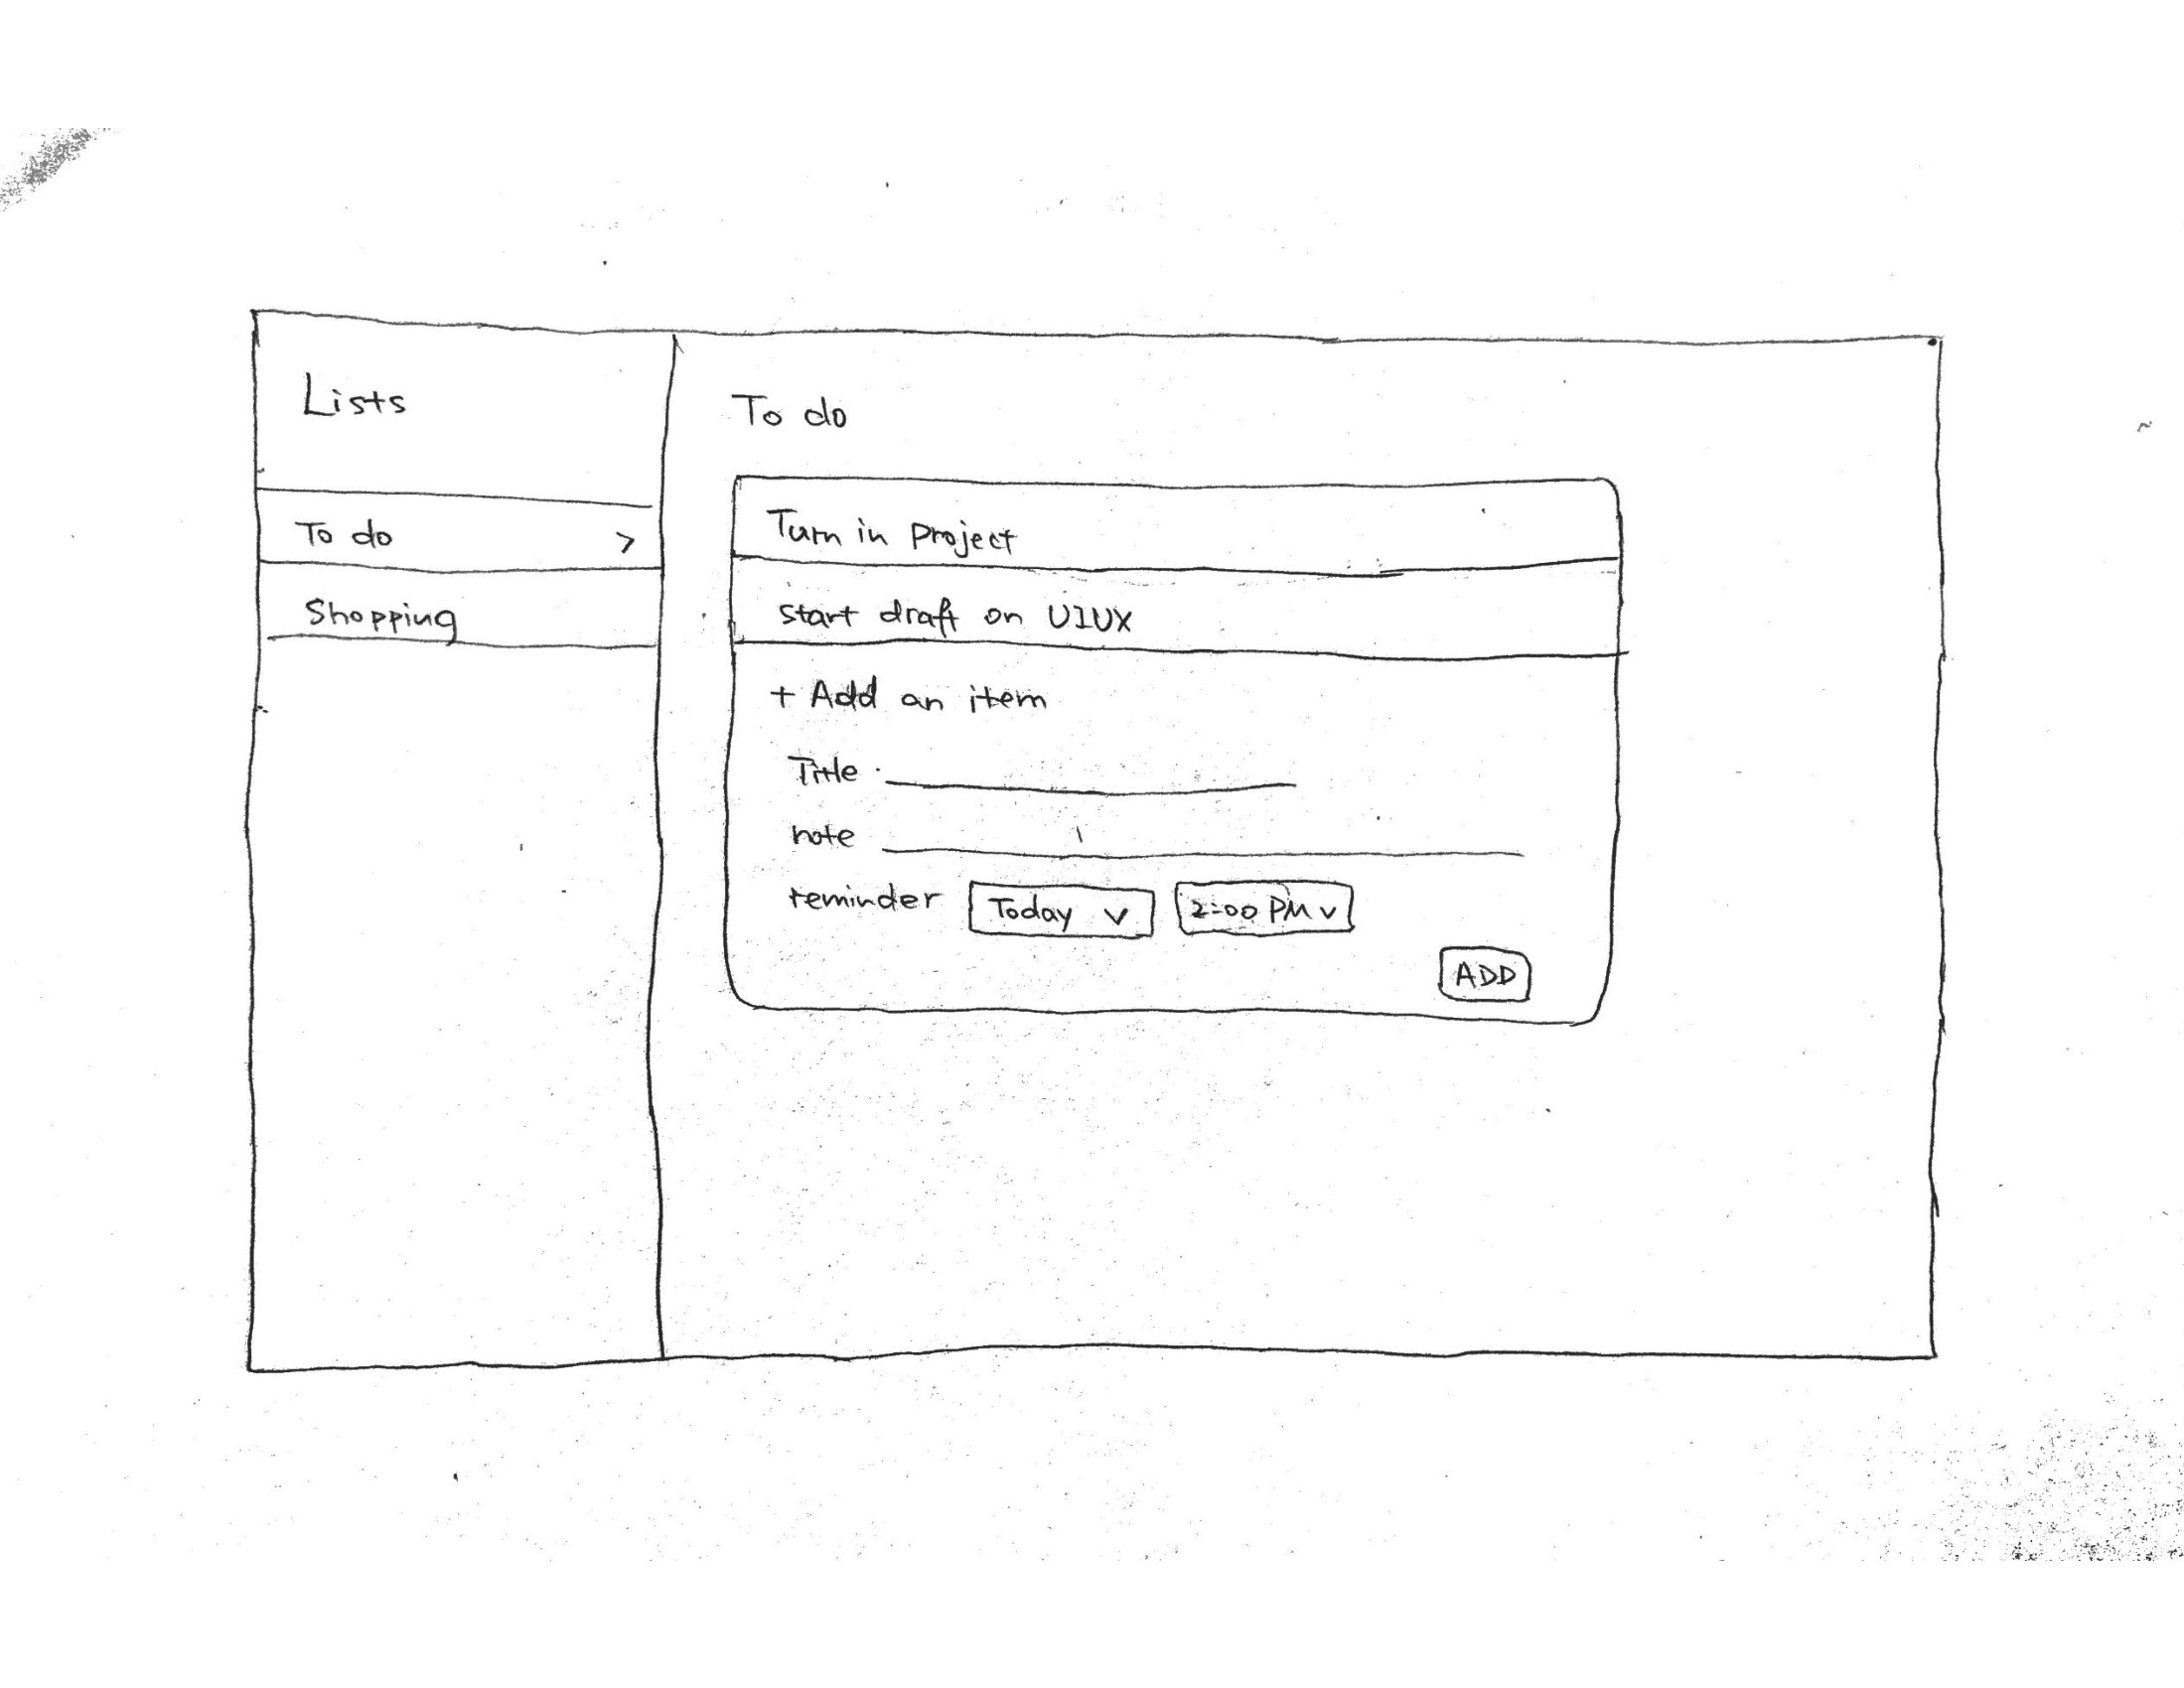 Lists
To do >
Shopping
To do
Turn in project
start draft on UIUX
+ Add an item
Title
note
reminder Today v 2:00 PM v
ADD